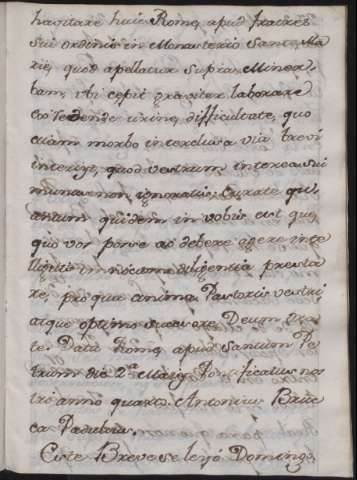 havitare huic Rome, apud fratres
sui ordinis in Monasterio Sancte Ma
rie, quod apellatur supra Miner
bam, ibi cepit graviter laborare
reddende urine difficultate, quo
etiam morbo interclusa via brevi
interijt, quod vestrum interea sui
munus non ignoratis: Curate qu
antum quidem in vobis est que
quo vos posse ac debere agere inte
lligitis in sociam diligentia presta
te, pro qua anima Pastoris vestri
atque optimo sucesore, Deum ora
te. Datt. Rome, apud sanctum Pe
trum die 2ª Maij Pontificatus nos
tri anno quarto. Antonius Baue
ca Padabeus.
Este Breve se leyó Domingo,